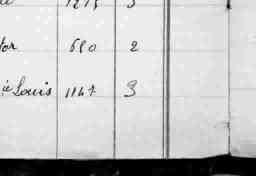 1275 3
tor 680 2
Louis 1147 3